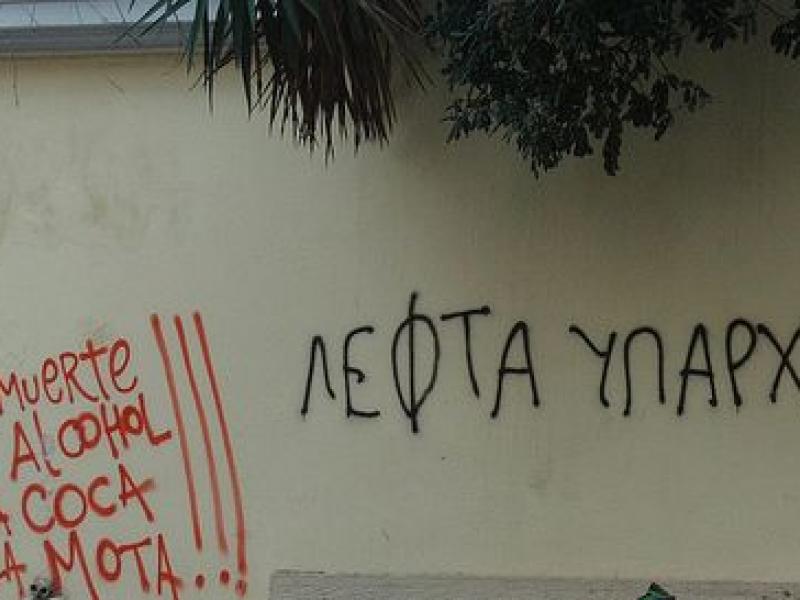 MUERTE
ALCOHOL
A COCA
A MOTA...!!!
ΛΕΦΤΑ ΥΠΑΡΧ